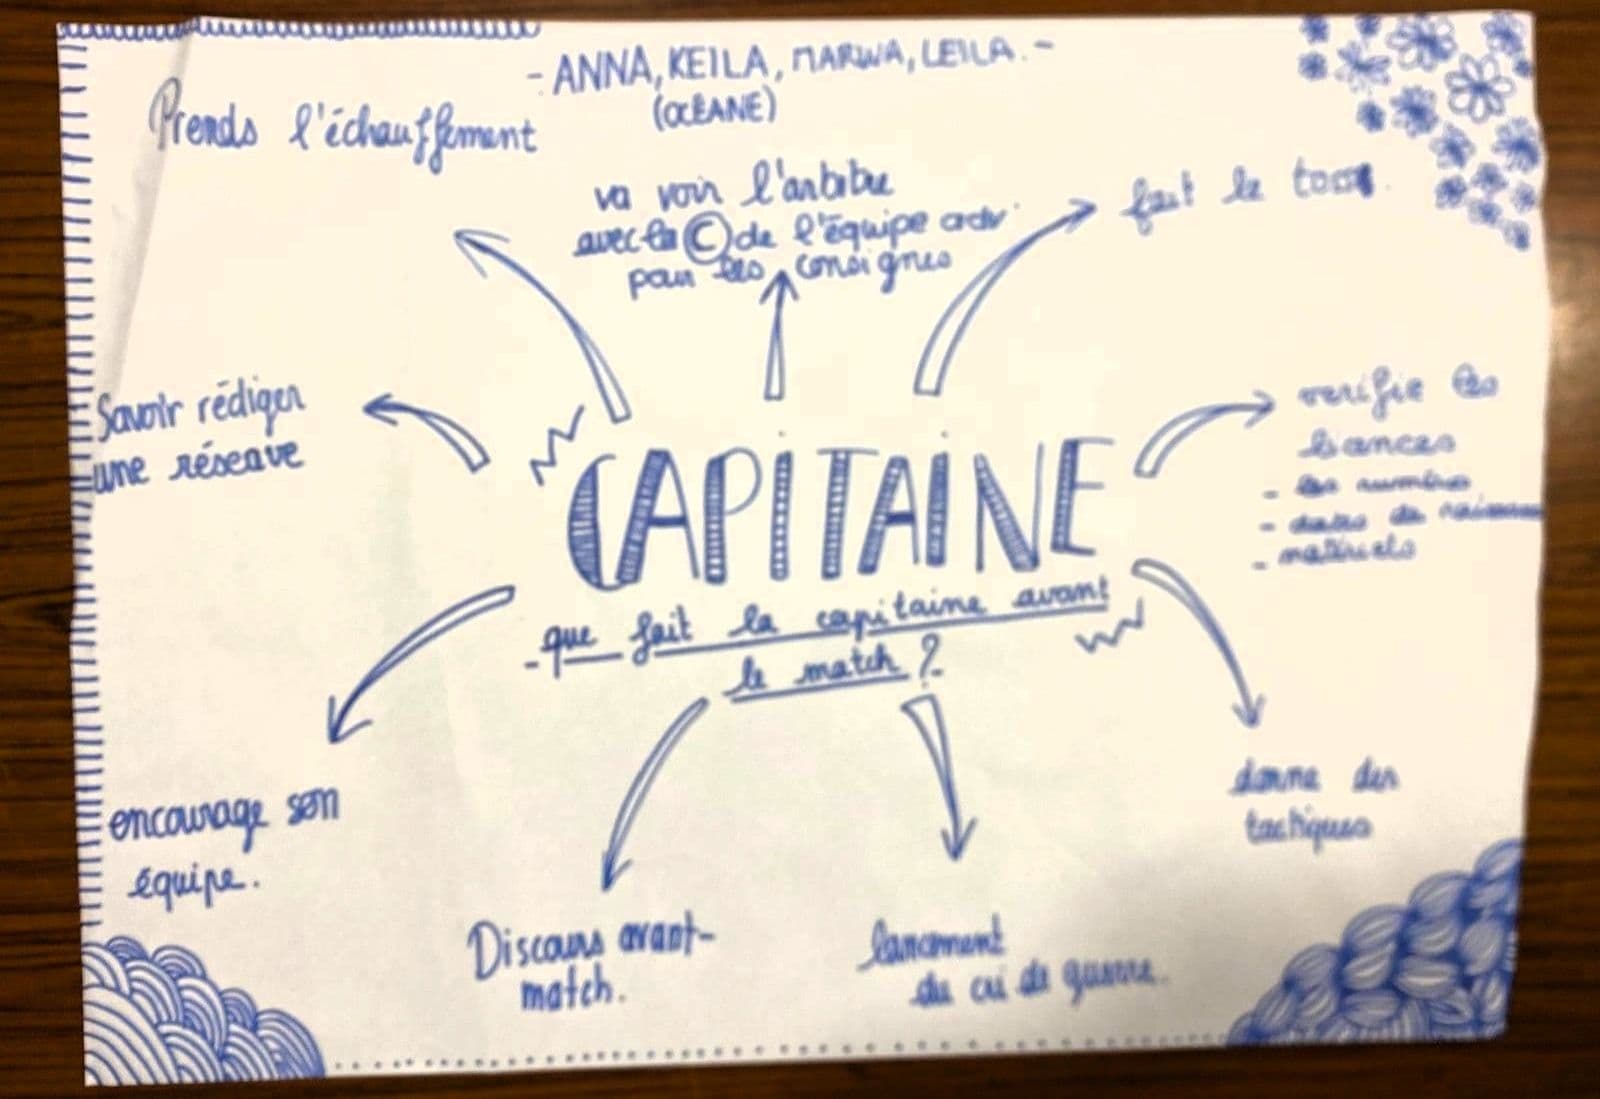 - ANNA, KEILA, MARWA, LEILA. -
(OCÉANE)
Prends l'échauffement
va voir l'arbitre
avec la © de l'équipe adv
pour les consignes
fait le toss.
Savoir rédiger
une réserve
verifie les
licances
- les numéros
- dates de naissance
- matériels
CAPITAINE
- que fait la capitaine avant
le match ?
encourage son
équipe.
Discours avant-
match.
lancement
du cri de guerre.
donne des
tactiques